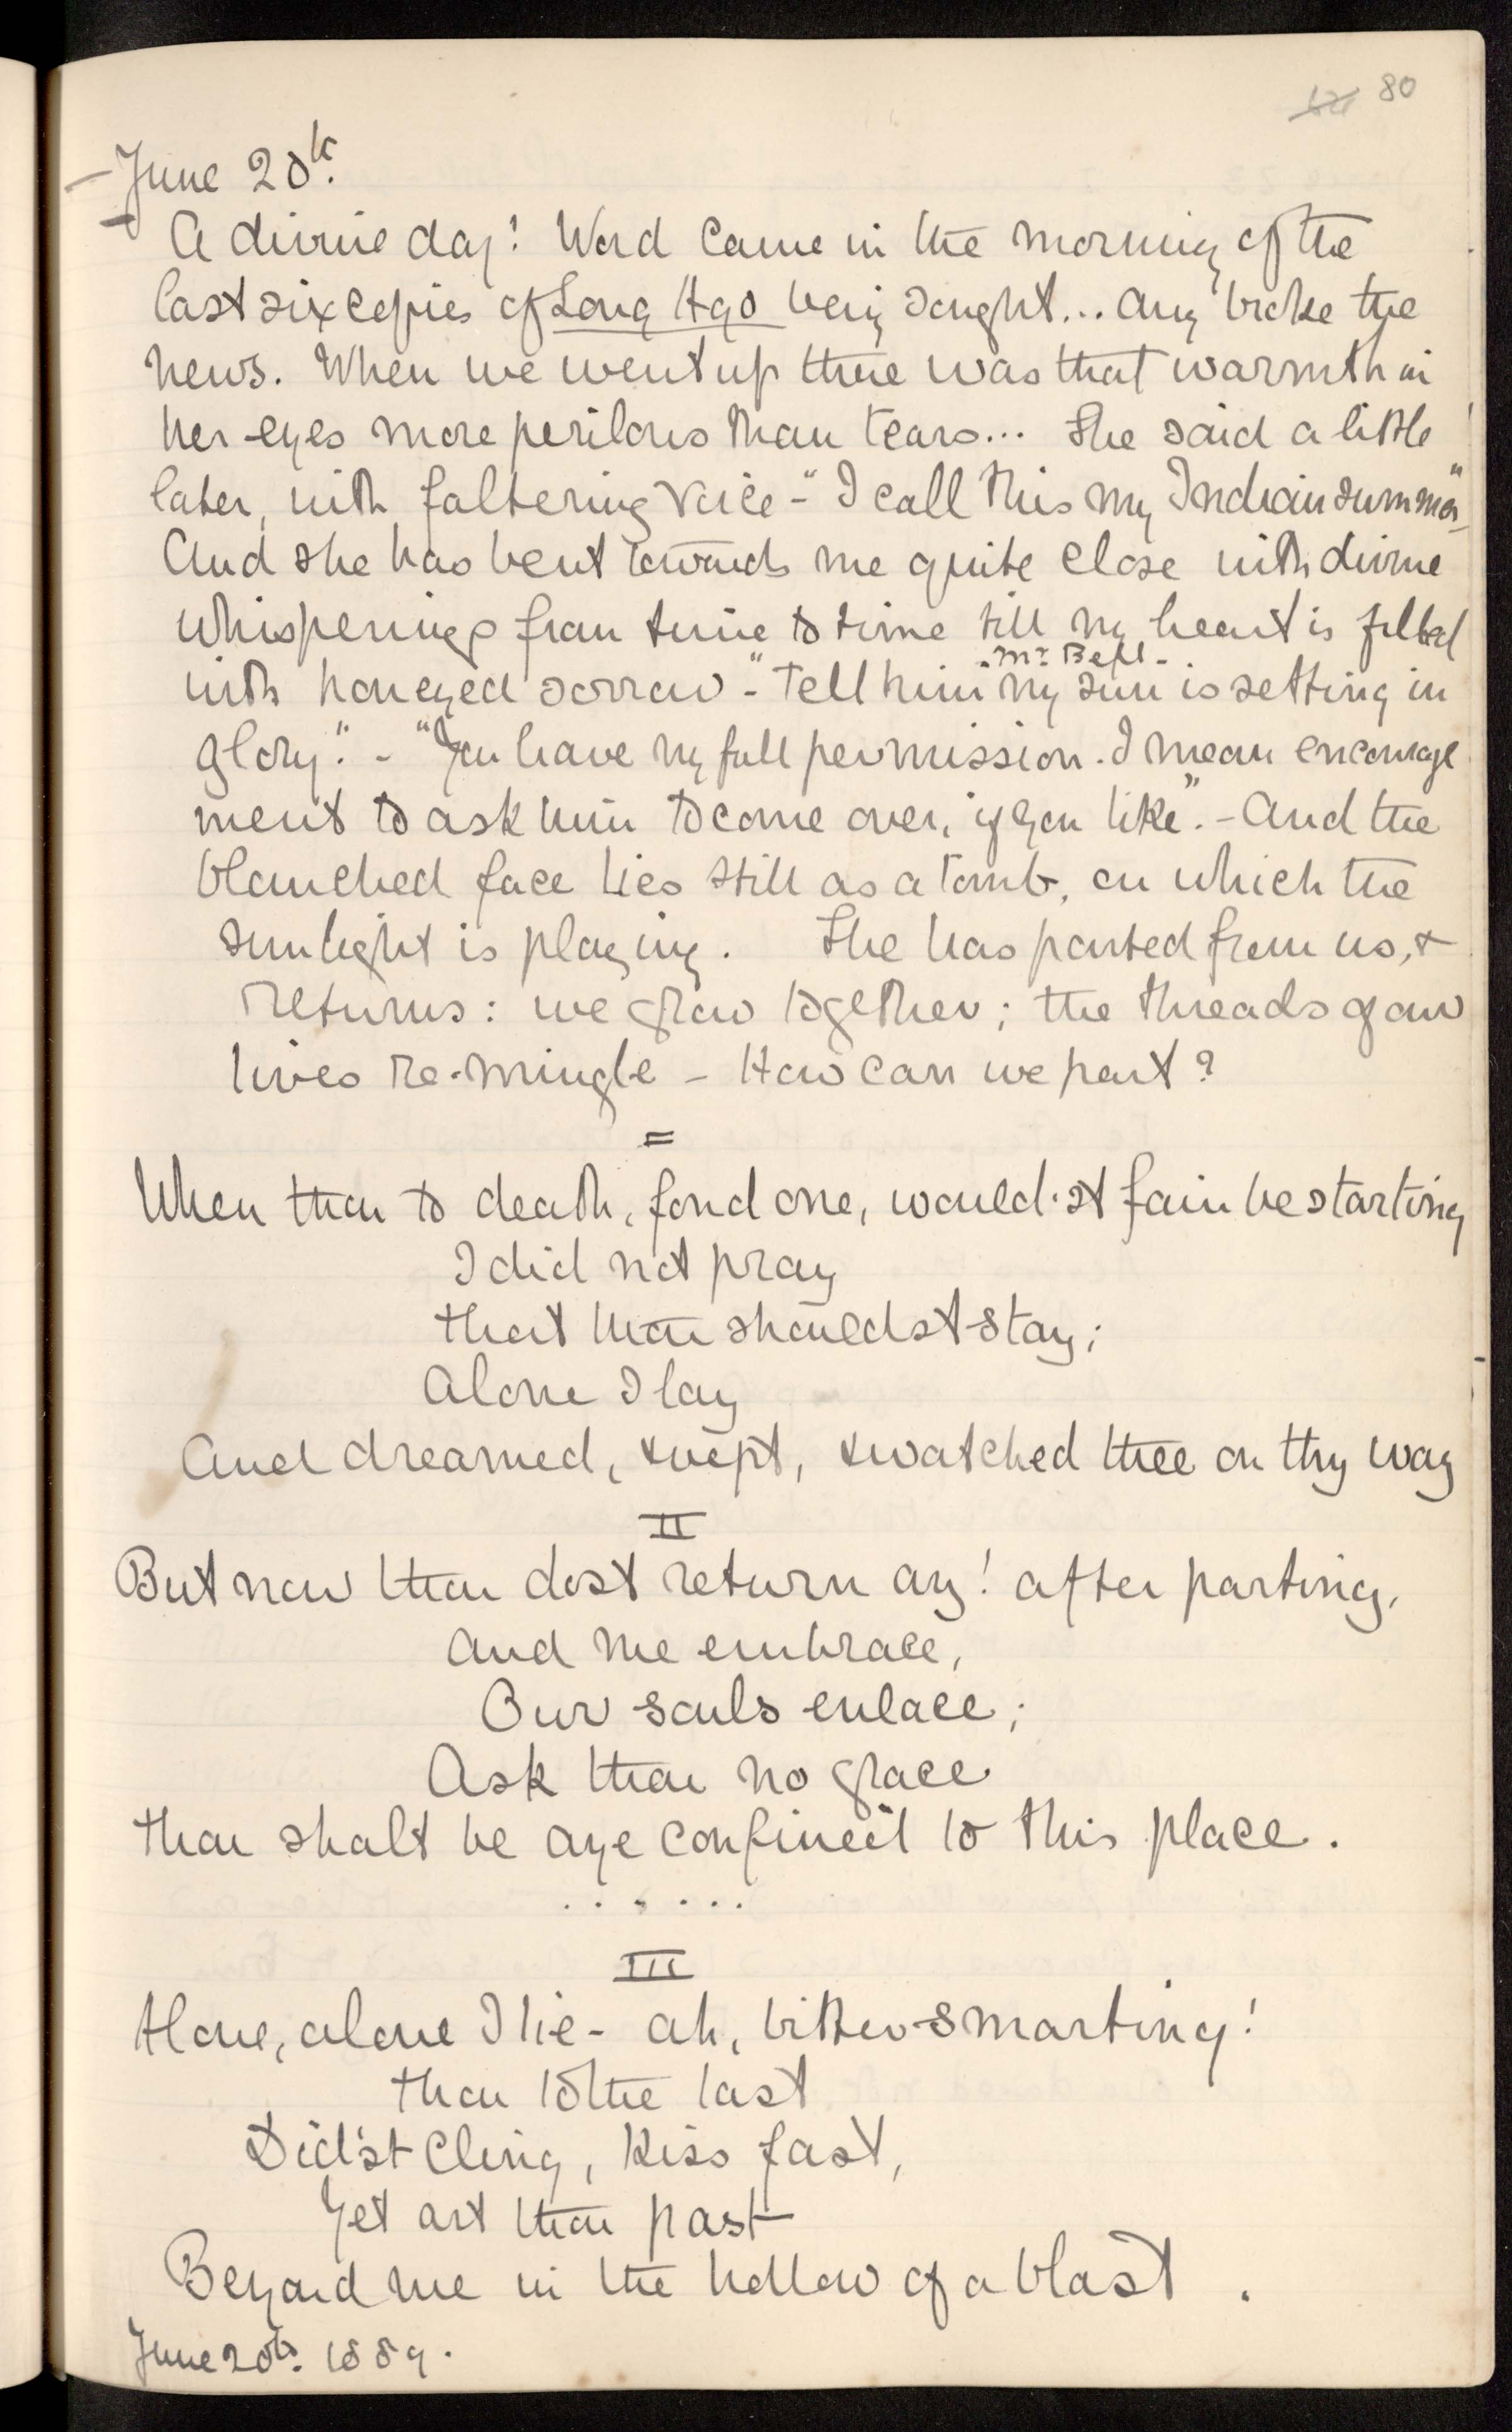 80
June 20th.
A divine day! Word came in the morning of the
last six copies of Long Ago being sought... Amy broke the
news. When we went up there was that warmth in
her eyes more perilous than tears... She said a little
later, with faltering voice - "I call this my Indian summer"
And she has bent towards me quite close with divine
whisperings from time to time till my heart is filled
- Mr Bell -
with honeyed sorrow - "Tell him my sun is setting in
glory." - "You have my full permission. I mean encourage
ment to ask him to come over, if you like". - And the
blanched face lies still as a tomb, on which the
sunlight is playing. She has parted from us, &
returns: we grow together; the threads of our
lives re-mingle - How can we part?
=
When thou to death, fond one, would'st fain be starting
I did not pray
that thou shouldst stay;
Alone I lay
And dreamed, & wept, & watched thee on thy way
II
But now thou dost return ay! after parting,
And me embrace,
Our souls enlace;
Ask thou no grace
thou shalt be aye confinèd to this place.
. . . . . .
III
Alone, alone I lie - ah, bitter smarting!
thou to the last
Did'st cling, kiss fast,
Yet art thou past
Beyond me in the hollow of a blast.
June 20th. 1889.